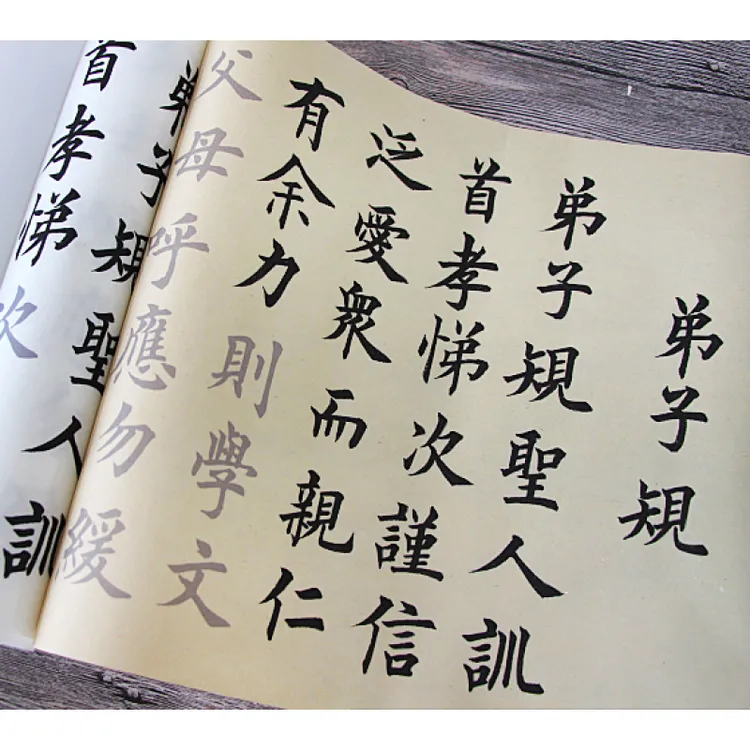 弟子規
弟子規聖人訓
首孝悌次謹信
泛愛衆而親仁
有余力則學文
父母呼應勿緩
弟子規聖人訓
首孝悌次